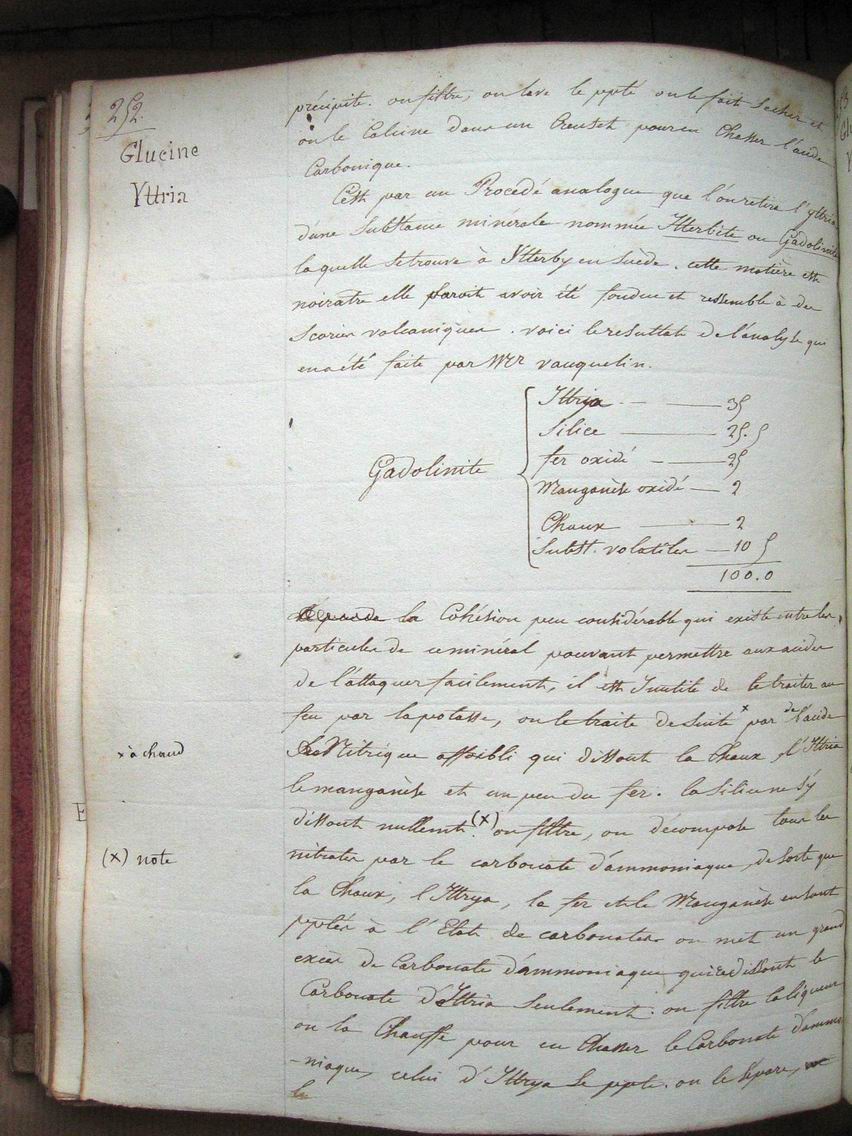 252.
Glucine
Yttria
précipite. on filtre, on lave le ppté on le fait secher et
on le Calcine dans un Creuset pour en Chasser l'acide
Carbonique.
C'est par un Procédé analogue que l'on retire l'yttria
d'une Substance minérale nommée Itterbite ou Gadolinite
laquelle se trouve à Ytterby en suède. cette matière est
noiratre elle paroit avoir été fondue et ressemble à des
scories volcaniques. voici le resultat de l'analyse qui
en a été faite par Mr vauquelin.
Gadolinite
Ittria — 35
Silice — 25.5
fer oxidé — 25
Manganèse oxidé — 2
Chaux — 2
Subst. volatiles — 10 5
100.0
la Cohésion peu considérable qui existe entre les
particules de ce minéral pouvant permettre aux acides
de l'attaquer facilement, il est Inutile de le traiter au
feu par la potasse, on le traite de suite x par de l'acide
x à chaud
Nitrique affoibli qui dissout la Chaux l'Ittria
le manganèse et un peu du fer. la Silice ne s'y
dissout nullemt. (x) on filtre, on décompose tous les
(x) note
nitrates par le carbonate d'ammoniaque, de sorte que
la Chaux, l'Ittrya, le fer et le Manganèse en sont
pptés à l'Etat de carbonates on met un grand
excès de Carbonate d'ammoniaque qui redissout le
Carbonate d'Ittria seulement. on filtre la liqueur
on la Chauffe pour en Chasser le Carbonate d'ammo
-niaque, celui d'Ittrya se ppte. on le sépare,